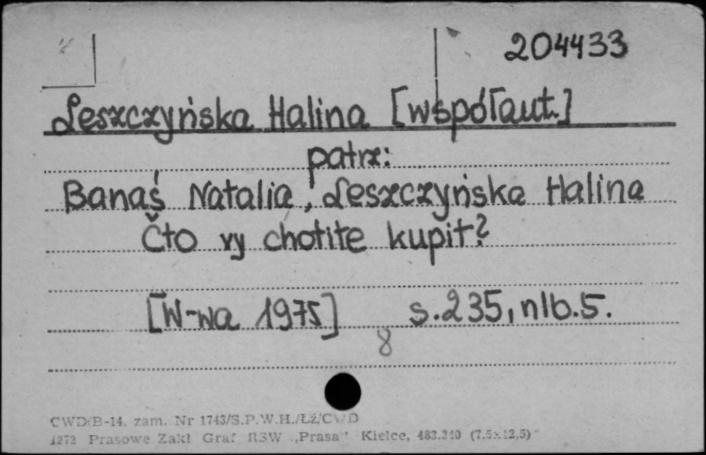 204433
Leszczyńska Halina [współaut.]
patrz:
Banaś Natalia, Leszczyńska Halina
Čto vy chotite kupit?
[W-wa 1975] s.235, nlb.5.
8
CWD/B-14. zam. Nr 1743/S.P.W.H./ŁŻ/CWD
1272 Prasowe Zakł Graf RSW „Prasa" Kielce, 483.310 (7.5×12,5)